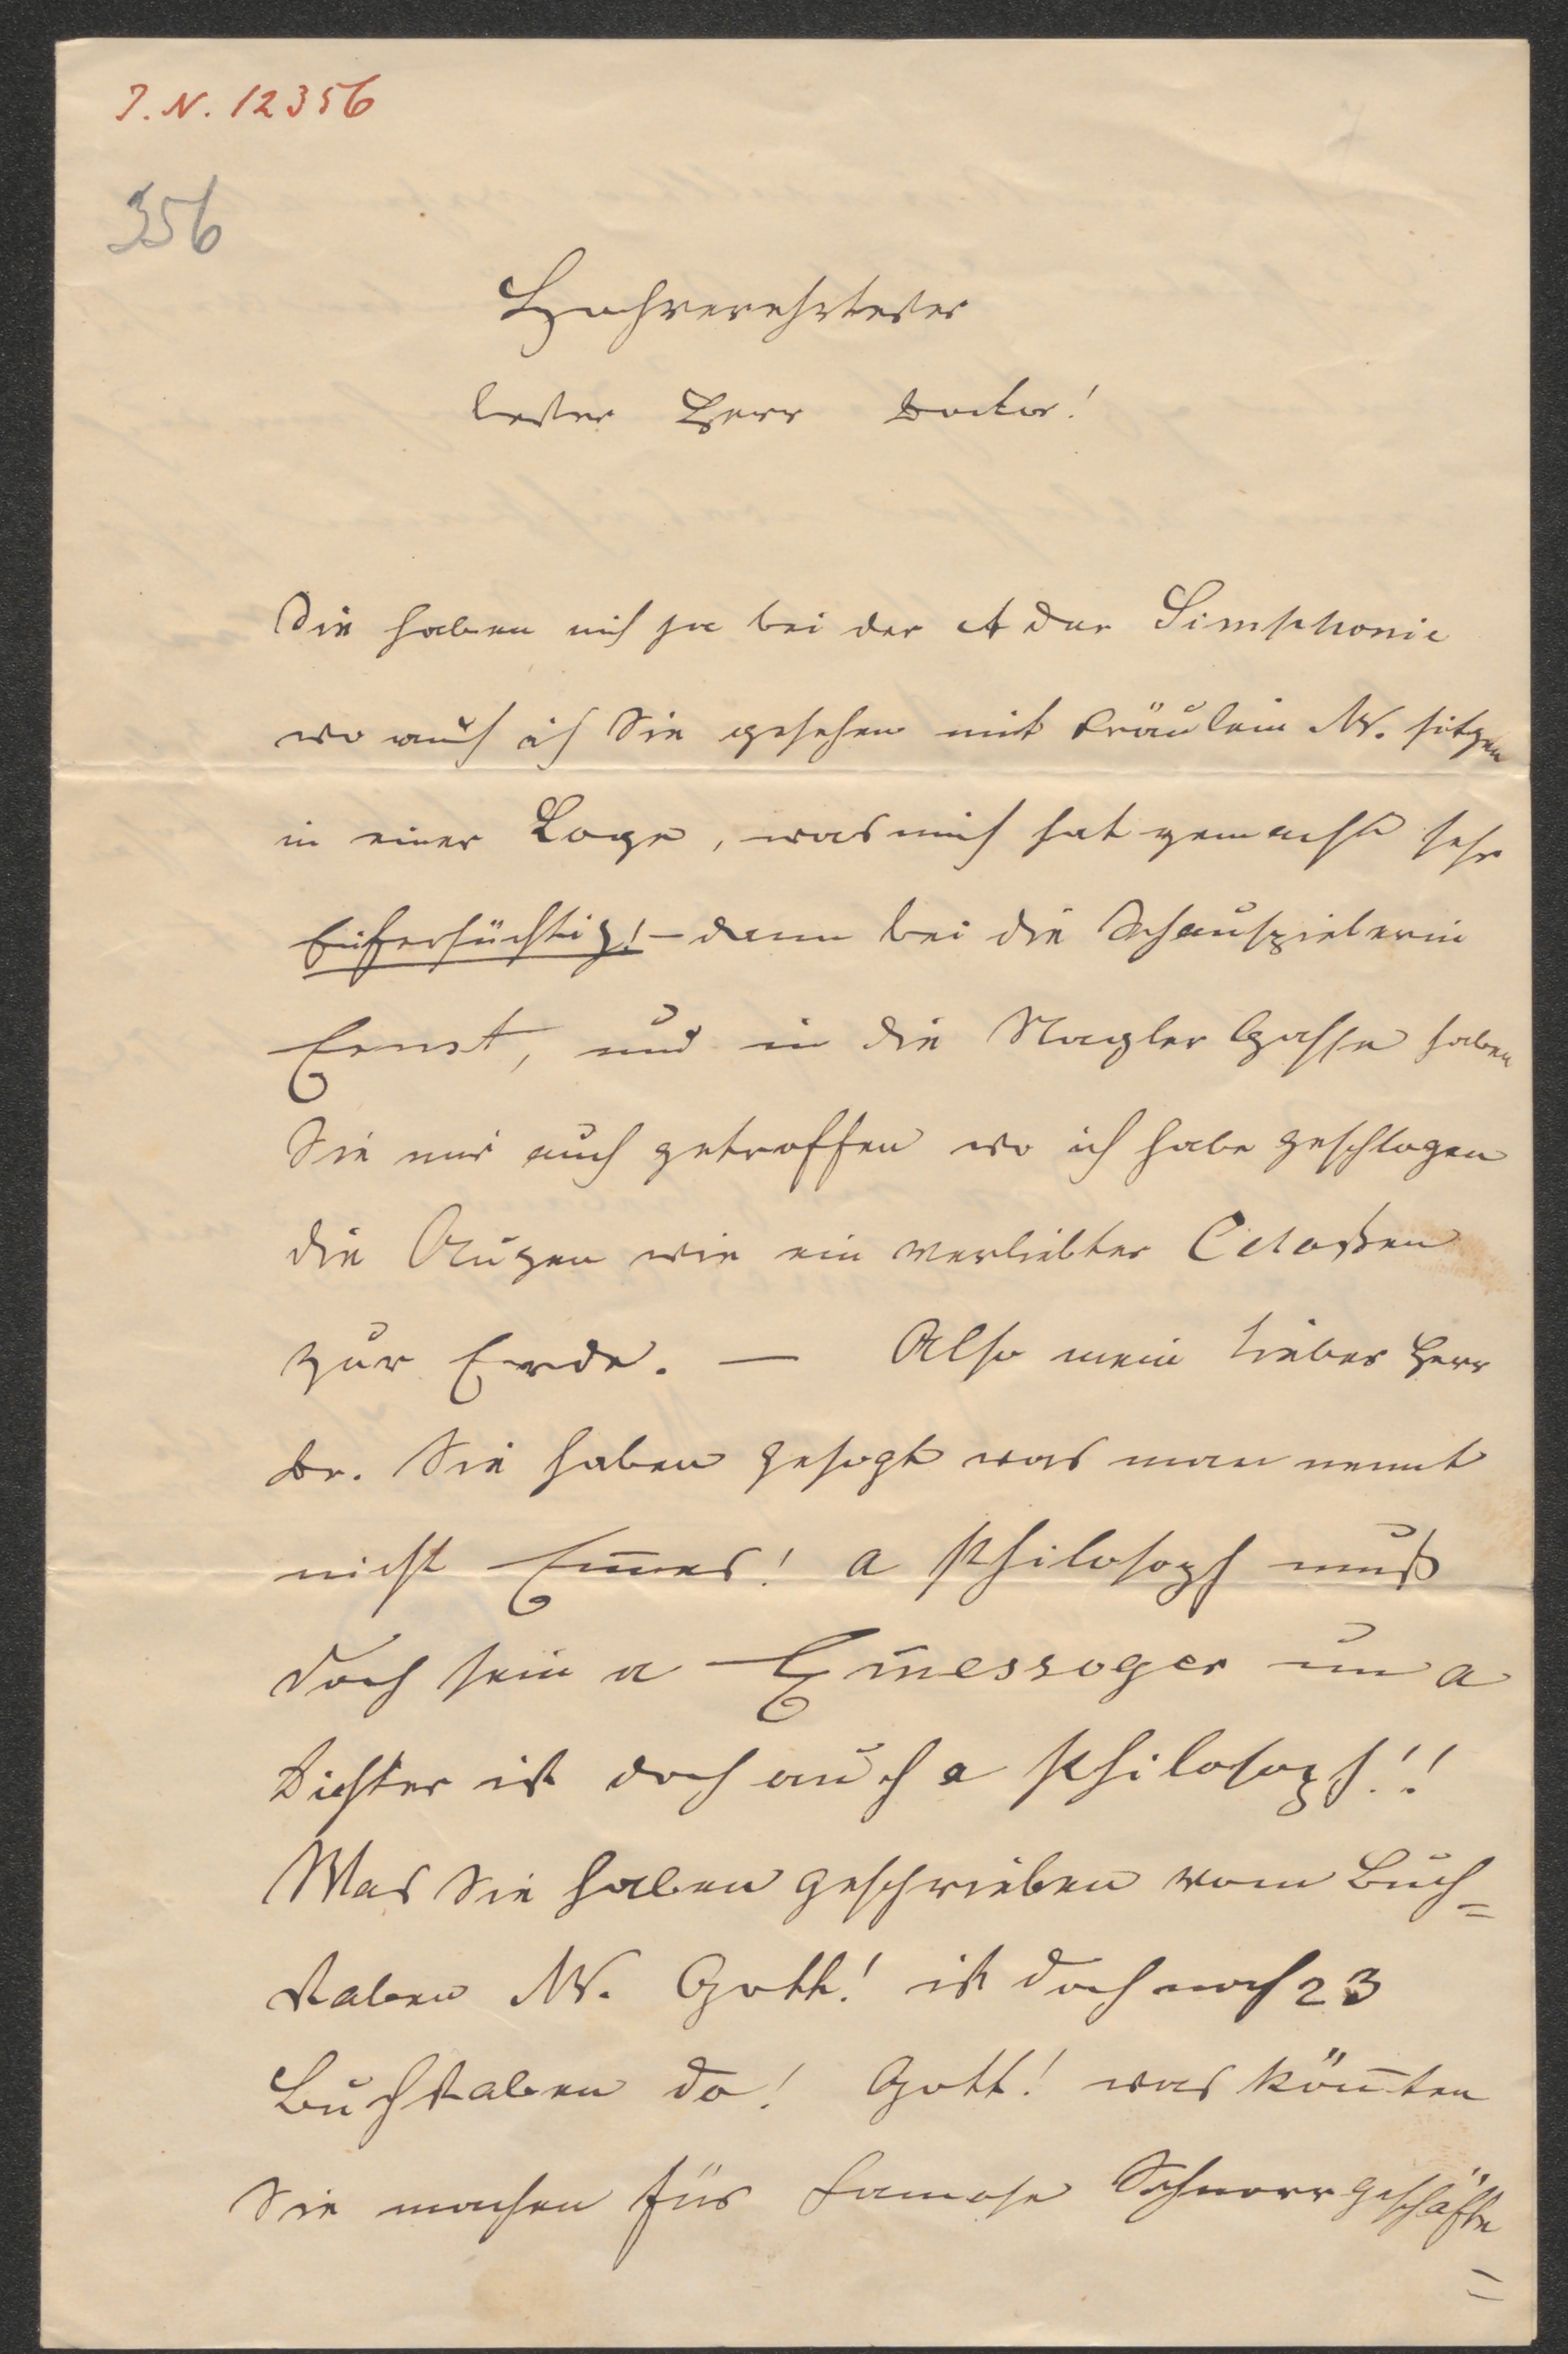 I. N. 12356
356
Hochverehrtester
bester Herr Doctor!
Sie haben mich ja bei der A dur Simphonie
wo auch ich Sie gesehen mit Fräulein W. sitzen
in einer Loge, was mich hat gemacht sehr
Eifersüchtig! – dann bei die Schauspielerin
Ernst, und in die Nagler Gasse haben
Sie mir auch getroffen wo ich habe geschlagen
die Augen wie ein verliebter
zur Erde. — Also mein lieber Herr
Dr. Sie haben gesagt was man nennt
nicht Em̅es! a Philosoph muß
doch sein a Em̅essoger un a
Dichter ist doch auch a Philosoph!!
Was Sie haben geschrieben vom Buch=
staben W. Gott! ist doch noch 23
Buchstaben do! Gott! was kön̅ten
Sie machen für famose Schnorrgeschäfte
=